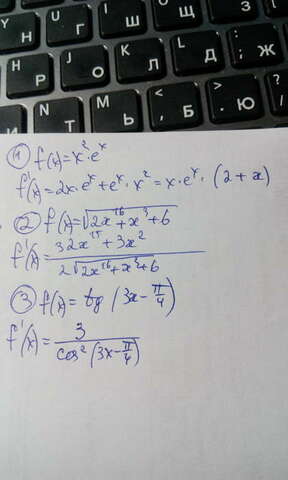 Y Н G U Г I 8 Ш O Щ P З
H Р J О K Л L Д : ; Ж
N Т M Ь < , Б > . Ю
① f(x)=x²·eˣ
f'(x)=2x·eˣ+eˣ·x²=x·eˣ·(2+x)
② f(x)=√(2x¹⁶+x³+6)
f'(x)=(32x¹⁵+3x²)/(2√(2x¹⁶+x³+6))
③ f(x)=tg(3x-π/4)
f'(x)=3/(cos²(3x-π/4))